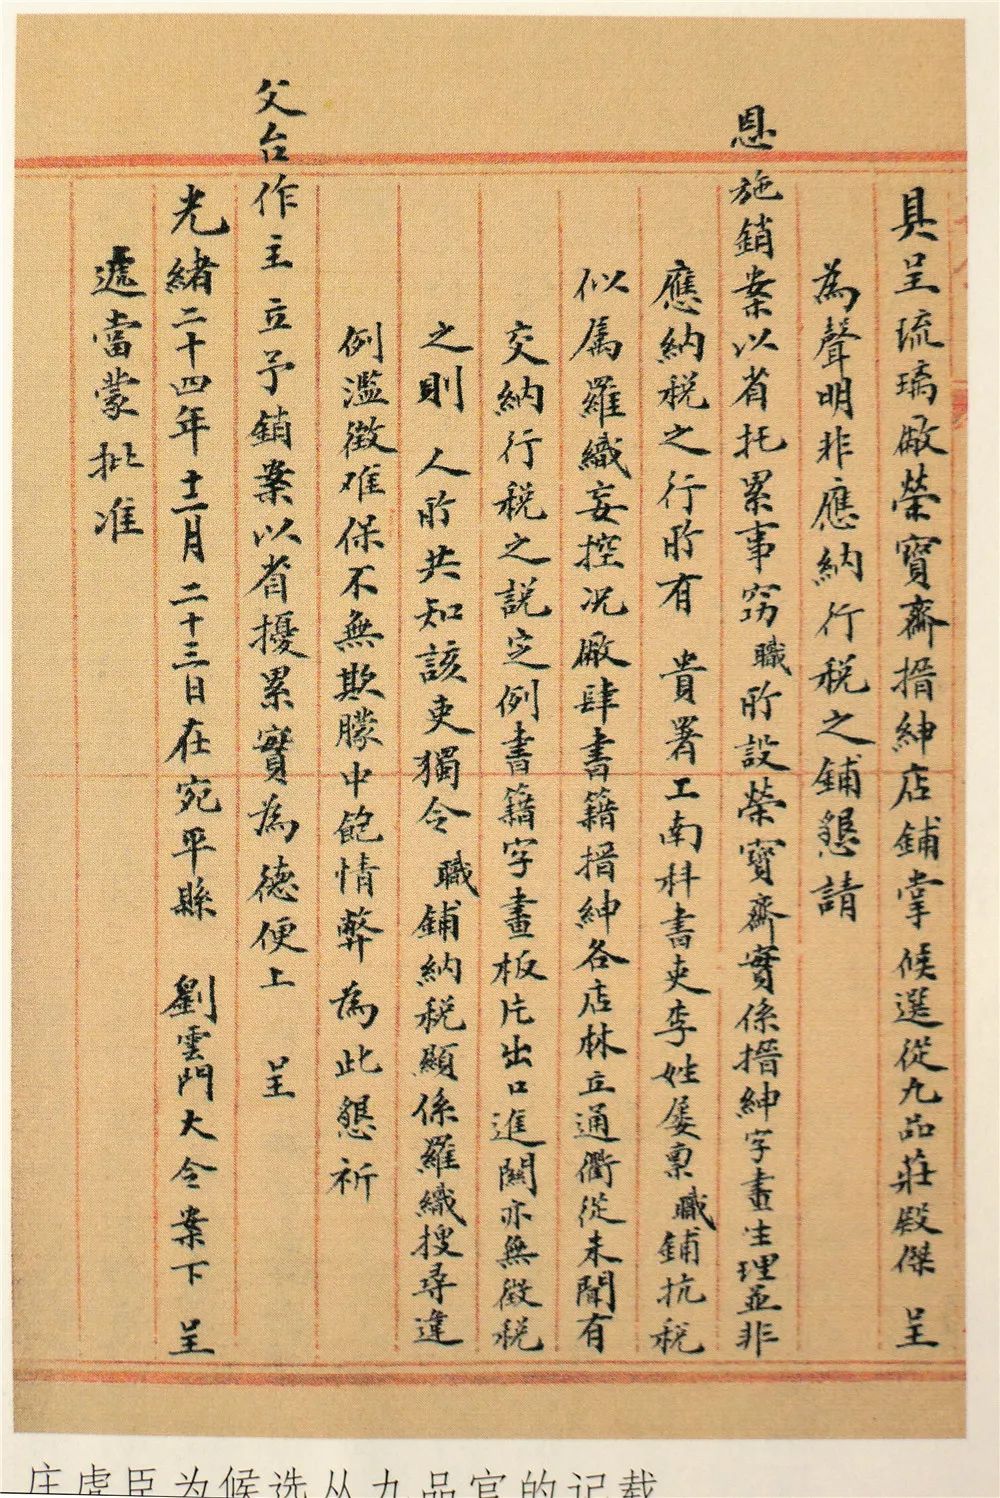 具呈琉璃厰榮寳齋搢紳店鋪掌候選從九品莊殿傑 呈
為聲明非應納行税之鋪懇請
恩施銷案以省托累事窃職所設榮寳齋實係搢紳字畫生理並非
應納税之行所有 貴署工南科書吏李姓屡禀職鋪抗税
似属羅織妄控况厰肆書籍搢紳各店林立通衢從未聞有
交納行税之説定例書籍字畫板片出口進關亦無徴税
之則 人所共知該吏獨令職鋪納税顯係羅織搜尋違
例濫徴难保不無欺朦中飽情弊為此懇祈
父台作主立予銷案以省擾累實為德便上 呈
光緒二十四年十二月二十三日在宛平縣 劉雲門大令案下 呈
遞當蒙批准
庄虎臣为候选从九品官的记载